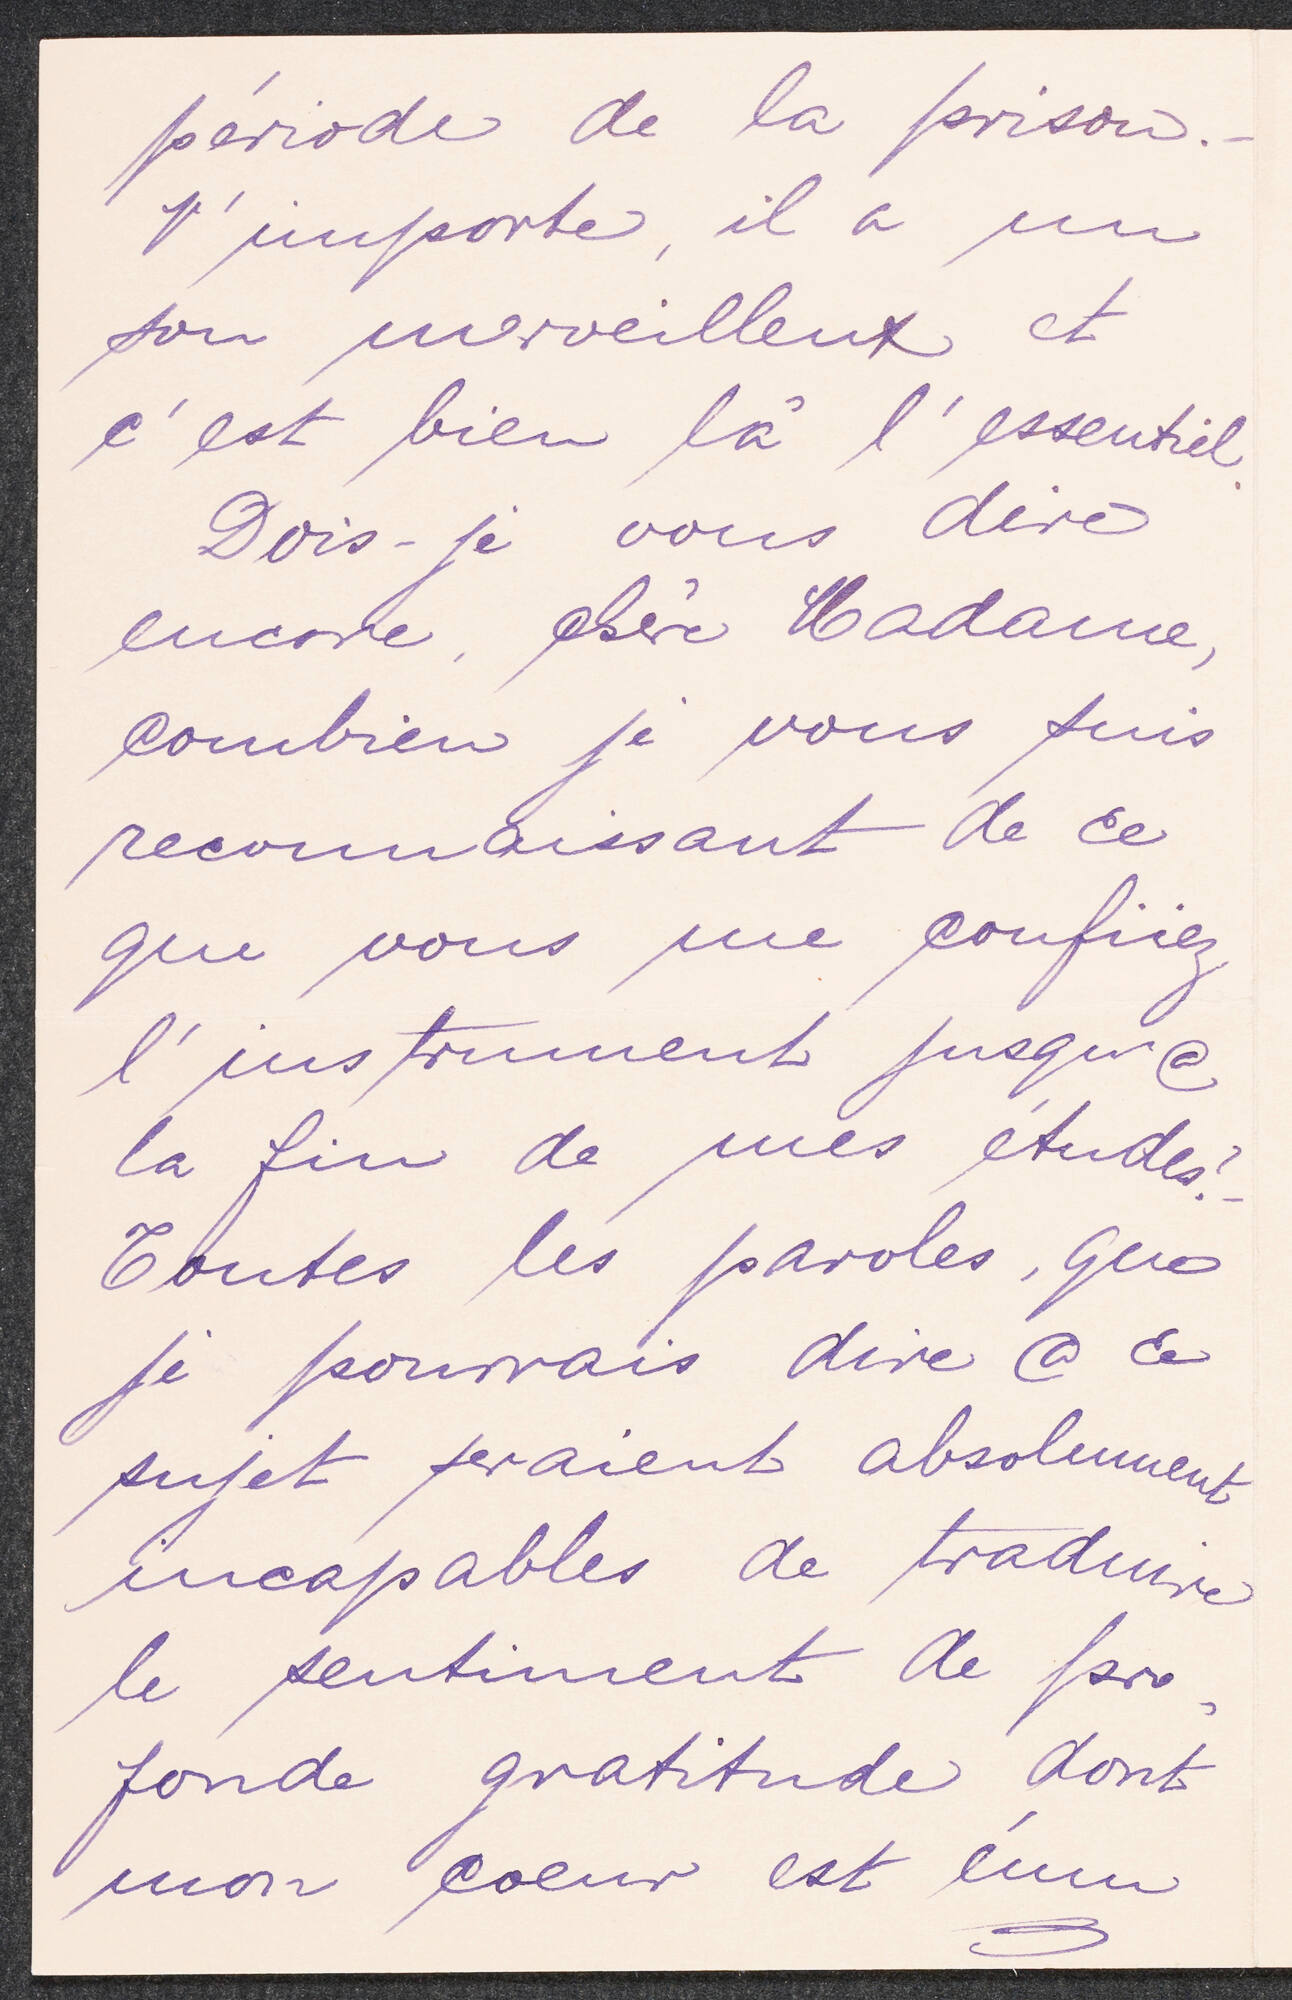 période de la prison.-
N'importe, il a un
son merveilleux et
c'est bien là l'essentiel.
Dois-je vous dire
encore, chère Madame,
combien je vous suis
reconnaissant de ce
que vous me confiiez
l'instrument jusqu'à
la fin de mes études?-
Toutes les paroles, que
je pourrais dire à ce
sujet seraient absolument
incapables de traduire
le sentiment de pro-
fonde gratitude dont
mon coeur est ému